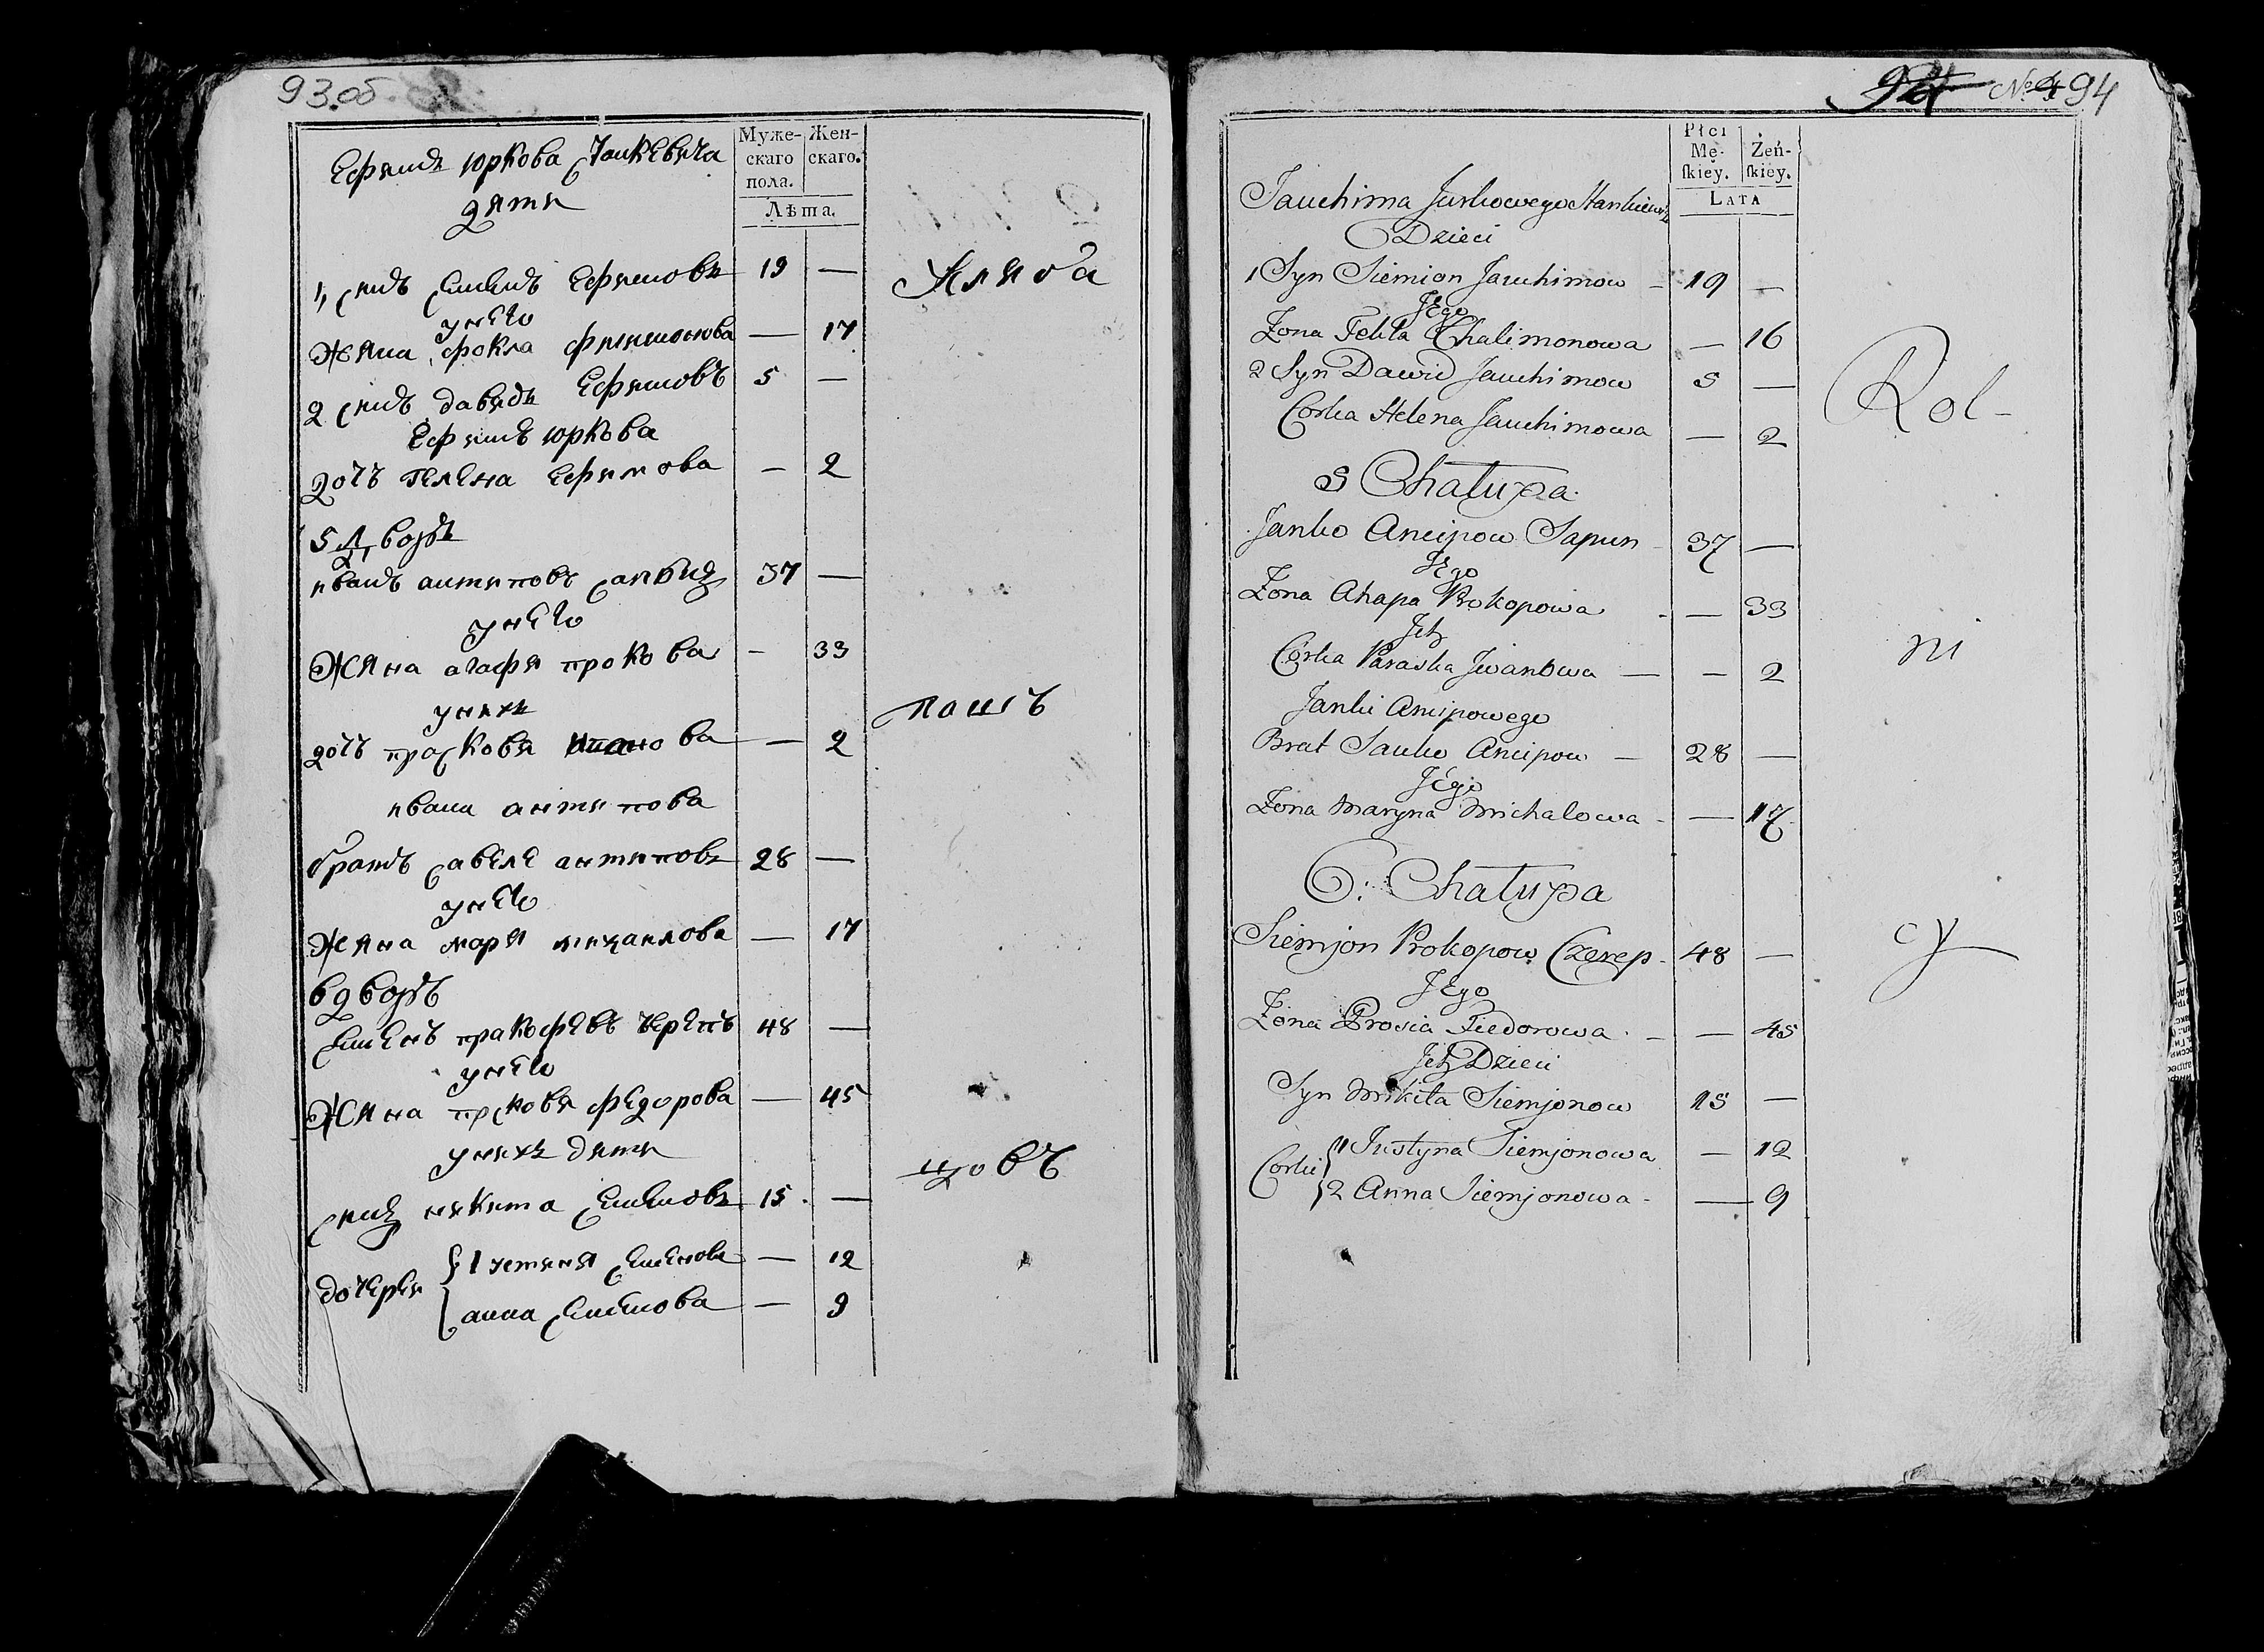 93 об.
Муже- Жен-
скаго скаго.
пола.
Лѣта.
Ефима Юркова Станкевича
дѣти
1, сынъ Семенъ Ефимовъ 19 —
у него
жена фокла — 17
2 сынъ давидъ Ефимовъ 5 —
Ефима Юркова
дочь Гелена Ефимова — 2
5 Дворъ
иванъ антиповъ 37 —
у него
жена агафи прокова — 33
у нихъ
дочь прасковя — 2
ивана антипова
братъ савеле антиповъ 28 —
у него
жена маря михаилова — 17
6 дворъ
семенъ пракофевъ черепъ 48 —
у него
жена прсковя федорова — 45
у нихъ дети
сынъ никита семеновъ 15 —
дочери { 1 устиня семенова — 12
анна семенова — 9
хлиба
пашъ
цовъ
94 № 4 94
Płci
Mę- Żeń-
skiey. skiey.
LATA
Jauchima Jurkowego Stankiewicz
Dzieci
1 Syn Siemion Jauchimow — 19 —
Jego
Zona Tekla Chalimonowa — 16
2 Syn Dawid Jauchimow 5 —
Corka Helena Jauchimowa — 2
5 Chałupa
Janko Ancipow Sapun 37 —
Jego
Zona Ahapa Prokopowa — 33
Ich
Córka Paraska Iwanowa — — 2
Janki Ancipowego
Brat Sauko Ancipow — 28 —
Jego
Zona Maryna Michalowa — 17
6: Chałupa
Siemjon Prokopow Czerep 48 —
Jego
Zona Prosia Fiedorowa — — 45
Ich Dzieci
Syn Mikita Siemjonow 15 —
Corki { 1 Justyna Siemjonowa — 12
2 Anna Siemjonowa — 9
Rol-
ni
cy